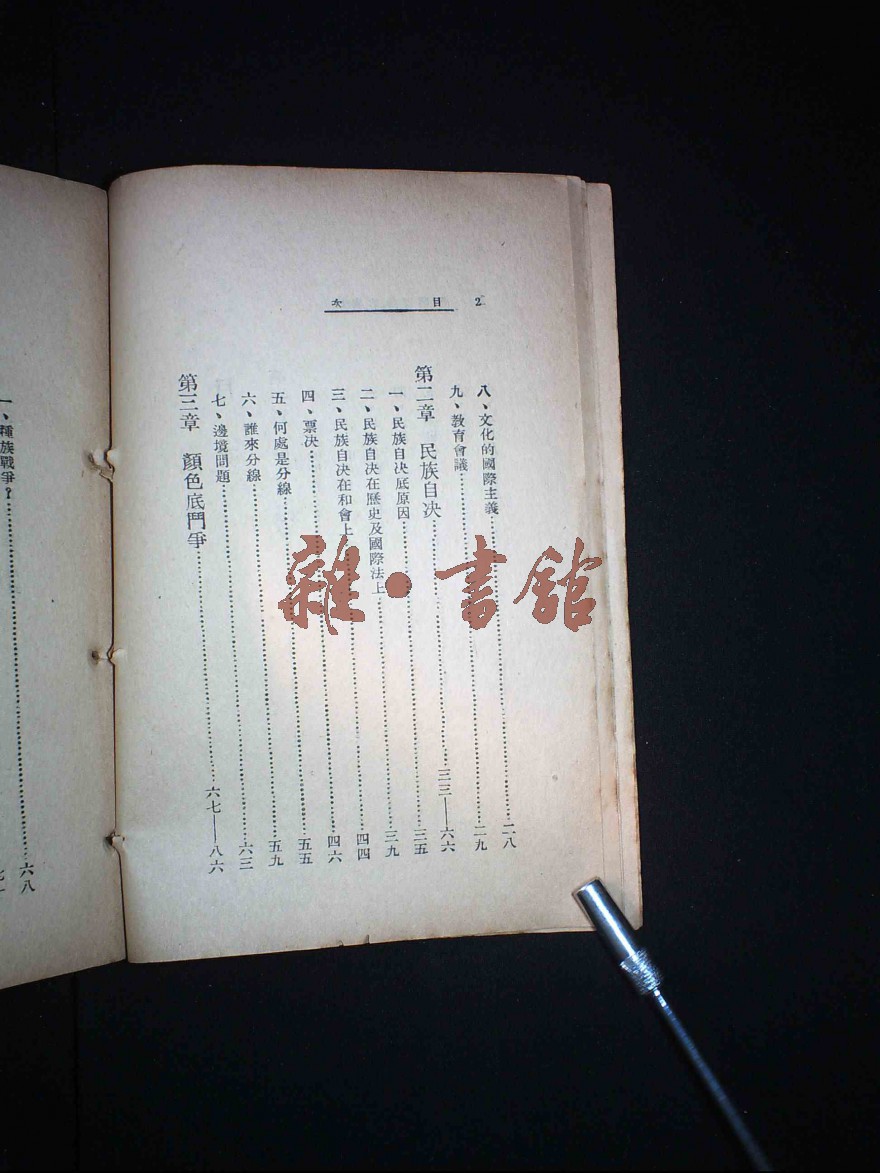 2 目次
八、文化的國際主義……二八
九、教育會議……二九
第二章 民族自决……三三——六六
一、民族自决底原因……三五
二、民族自决在歷史及國際法上……三九
三、民族自决在和會上……四四
四、票决……四六
五、何處是分線……五五
六、誰來分線……五九
七、邊境問題……六三
第三章 顏色底鬥爭……六七——八六
一、種族戰爭？……六八
雜·書館